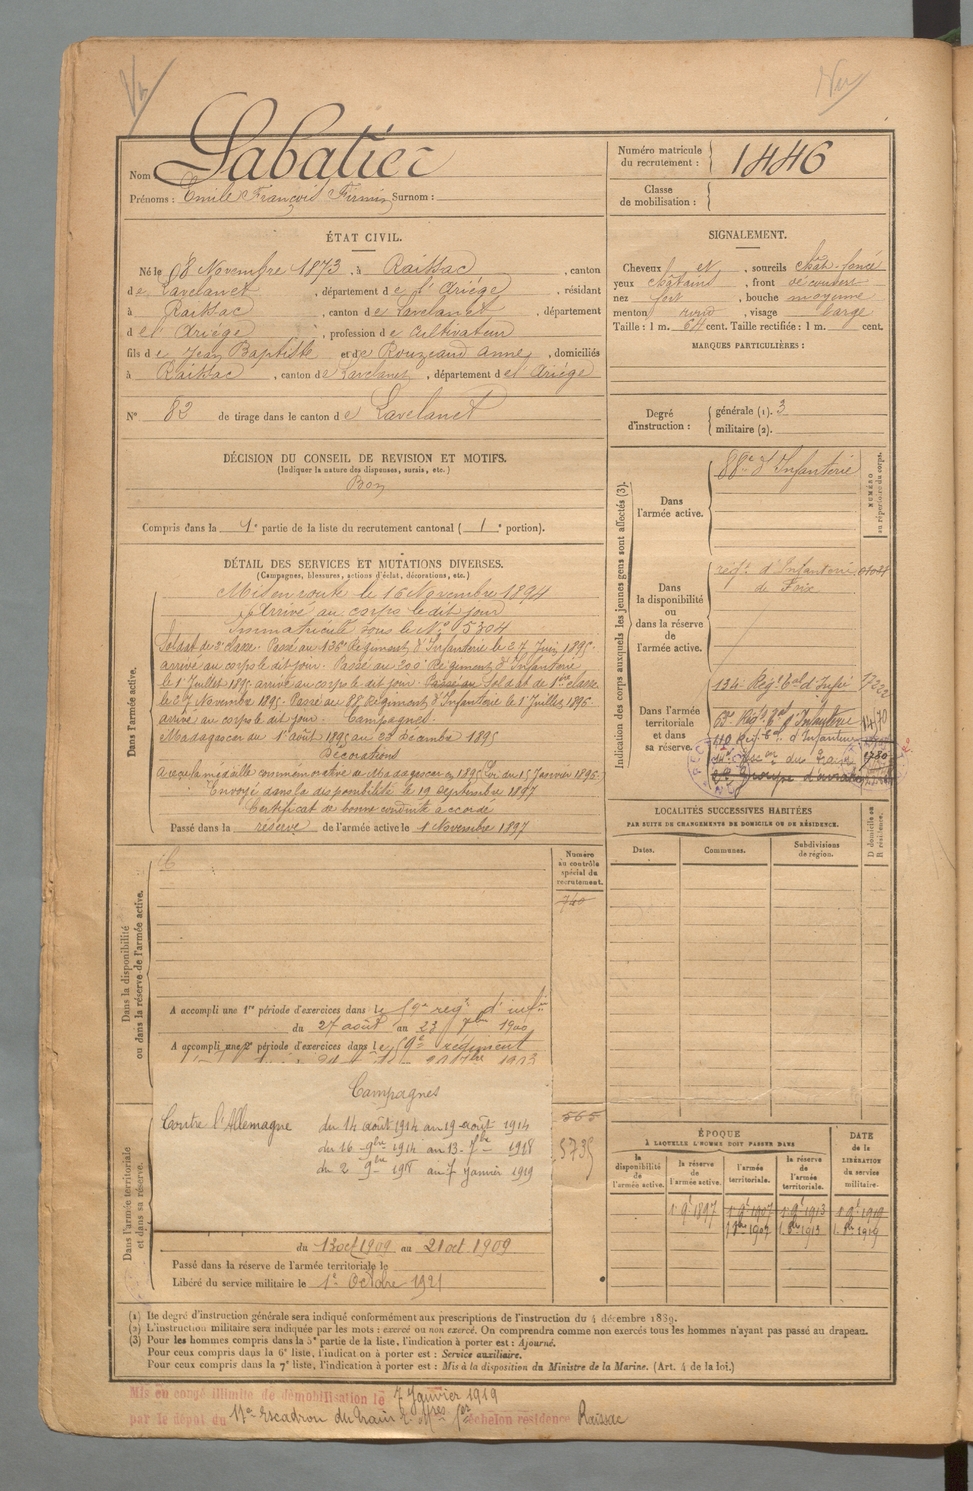 Vu
Vu
Nom Sabatier
Prénoms : Emile François Firmin Surnom :
Numéro matricule du recrutement : 1446
Classe de mobilisation :
ÉTAT CIVIL.
Né le 8 Novembre 1873, à Raissac, canton
de Lavelanet, département de l'Ariège, résidant
à Raissac, canton de Lavelanet, département
de l'Ariège, profession de Cultivateur
fils de Jean Baptiste et de Rouzeaud Anne, domiciliés
à Raissac, canton de Lavelanet, département de l'Ariège
N° 82 de tirage dans le canton de Lavelanet
SIGNALEMENT.
Cheveux et, sourcils chât. foncé
yeux châtains, front découvert
nez fort, bouche moyenne
menton rond, visage large
Taille : 1 m. 64 cent. Taille rectifiée : 1 m. cent.
MARQUES PARTICULIÈRES :
Degré d'instruction : générale (1). 3
militaire (2).
DÉCISION DU CONSEIL DE REVISION ET MOTIFS.
(Indiquer la nature des dispenses, sursis, etc.)
Bon
Compris dans la 1e partie de la liste du recrutement cantonal (1e portion).
DÉTAIL DES SERVICES ET MUTATIONS DIVERSES.
(Campagnes, blessures, actions d'éclat, décorations, etc.)
Dans l'armée active.
Mis en route le 16 Novembre 1894
Arrivé au corps le dit jour
Immatriculé sous le N° 5304
Soldat de 2e classe. Passé au 136e Régiment d'Infanterie le 27 Juin 1895.
arrivé au corps le dit jour. Passé au 200e Régiment d'Infanterie
le 1er Juillet 1895 arrivé au corps le dit jour. Passé au Soldat de 1ère classe
le 27 Novembre 1895. Passé au 88e Régiment d'Infanterie le 1er Juillet 1896.
arrivé au corps le dit jour. Campagnes.
Madagascar du 1er août 1895 au 23 décembre 1895
Décorations
a reçu la médaille commémorative de Madagascar en 1895 Loi du 15 Janvier 1896.
Envoyé dans la disponibilité le 19 Septembre 1897
Certificat de bonne conduite accordé
Passé dans la réserve de l'armée active le 1 Novembre 1897
Indication des corps auxquels les jeunes gens sont affectés (3).
NUMÉRO au répertoire du corps.
Dans l'armée active.
88e d'Infanterie
Dans la disponibilité ou dans la réserve de l'armée active.
régt. d'Infanterie
de Foix
Dans l'armée territoriale et dans sa réserve.
134e Régt tal d'Infie
1470
1780
LOCALITÉS SUCCESSIVES HABITÉES
PAR SUITE DE CHANGEMENTS DE DOMICILE OU DE RÉSIDENCE.
Dates.
Communes.
Subdivisions de région.
D domicile ou R résidence.
Dans la disponibilité ou dans la réserve de l'armée active.
Numéro au contrôle spécial du recrutement.
740
A accompli une 1re période d'exercices dans le 59e regt d'infie
du 27 août au 23 7bre 1900
A accompli une 2e période d'exercices dans le 59e régiment
Dans l'armée territoriale et dans sa réserve.
565
5735
Campagnes
Contre l'Allemagne du 14 août 1914 au 19 août 1914
du 16 9bre 1914 au 13 7bre 1918
du 2 9bre 1918 au 7 Janvier 1919
du 13 oct 1909 au 21 oct 1909
Passé dans la réserve de l'armée territoriale le
Libéré du service militaire le 1er Octobre 1921
ÉPOQUE
À LAQUELLE L'HOMME DOIT PASSER DANS
DATE de la LIBÉRATION du service militaire.
la disponibilité de l'armée active.
la réserve de l'armée active.
l'armée territoriale.
la réserve de l'armée territoriale.
1 9bre 1897
1 9bre 1907
1 9bre 1913
1 9bre 1919
1 8bre 1907
1. 8bre 1913
1. 8bre 1919
(1) Le degré d'instruction générale sera indiqué conformément aux prescriptions de l'instruction du 4 décembre 1889.
(2) L'instruction militaire sera indiquée par les mots : exercé ou non exercé. On comprendra comme non exercés tous les hommes n'ayant pas passé au drapeau.
(3) Pour les hommes compris dans la 5e partie de la liste, l'indication à porter est : Ajourné.
Pour ceux compris dans la 6e liste, l'indication à porter est : Service auxiliaire.
Pour ceux compris dans la 7e liste, l'indication à porter est : Mis à la disposition du Ministre de la Marine. (Art. 4 de la loi.)
Mis en congé illimité de démobilisation le 7 Janvier 1919
par le dépôt du 17e Escadron du train échelon résidence Raissac